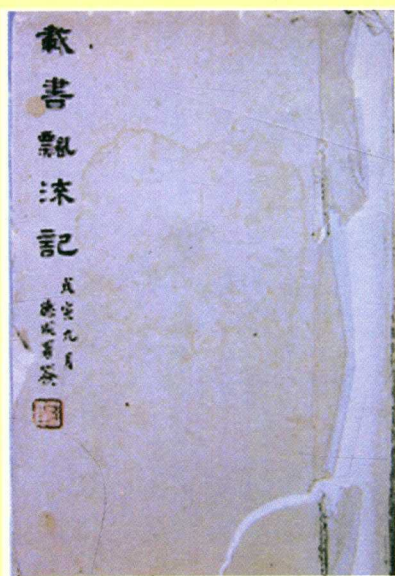 載書飄流記
戊寅九月
德成署簽